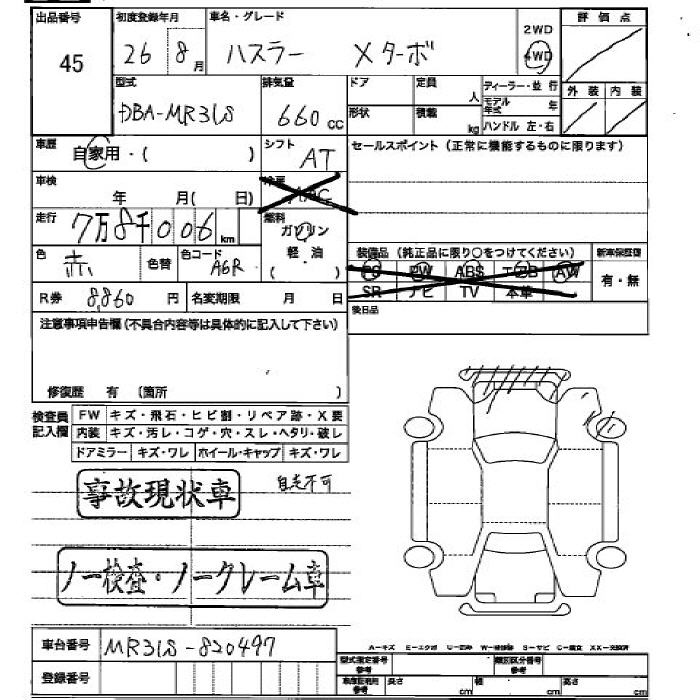 出品番号 初度登録年月 車名・グレード 評価点
45 26 8月 ハスラー Xターボ 2WD 4WD
型式 排気量 ドア 定員 人 ディーラー・並行 外装 内装
DBA-MR31S 660cc 形状 積載 kg モデル年式 年
ハンドル 左・右
車歴 自家用・( ) シフト AT セールスポイント(正常に機能するものに限ります)
車検 年 月( 日) 冷房
走行 7万8千006km 燃料 ガソリン
色 赤 色替 色コード A6R 軽・油 ( ) 装備品(純正品に限り○をつけてください) 新車保証書
PS PW ABS エアB AW 有・無
R券 8,860円 名変期限 月 日 SR ナビ TV 本革
注意事項申告欄(不具合内容等は具体的に記入して下さい) 後日品
修復歴 有 (箇所 )
検査員記入欄 FW キズ・飛石・ヒビ割・リペア跡・X要
内装 キズ・汚レ・コゲ・穴・スレ・ヘタリ・破レ
ドアミラー キズ・ワレ ホイール・キャップ キズ・ワレ
事故現状車 自走不可
ノー検査・ノークレーム車
車台番号 MR31S-820497
A-キズ E-エクボ U-凹み W-補修跡 S-サビ C-腐食 XX-交換済
登録番号 型式指定番号 参考 類別区分番号 参考
車検証記載 参考 長さ cm 幅 cm 高さ cm